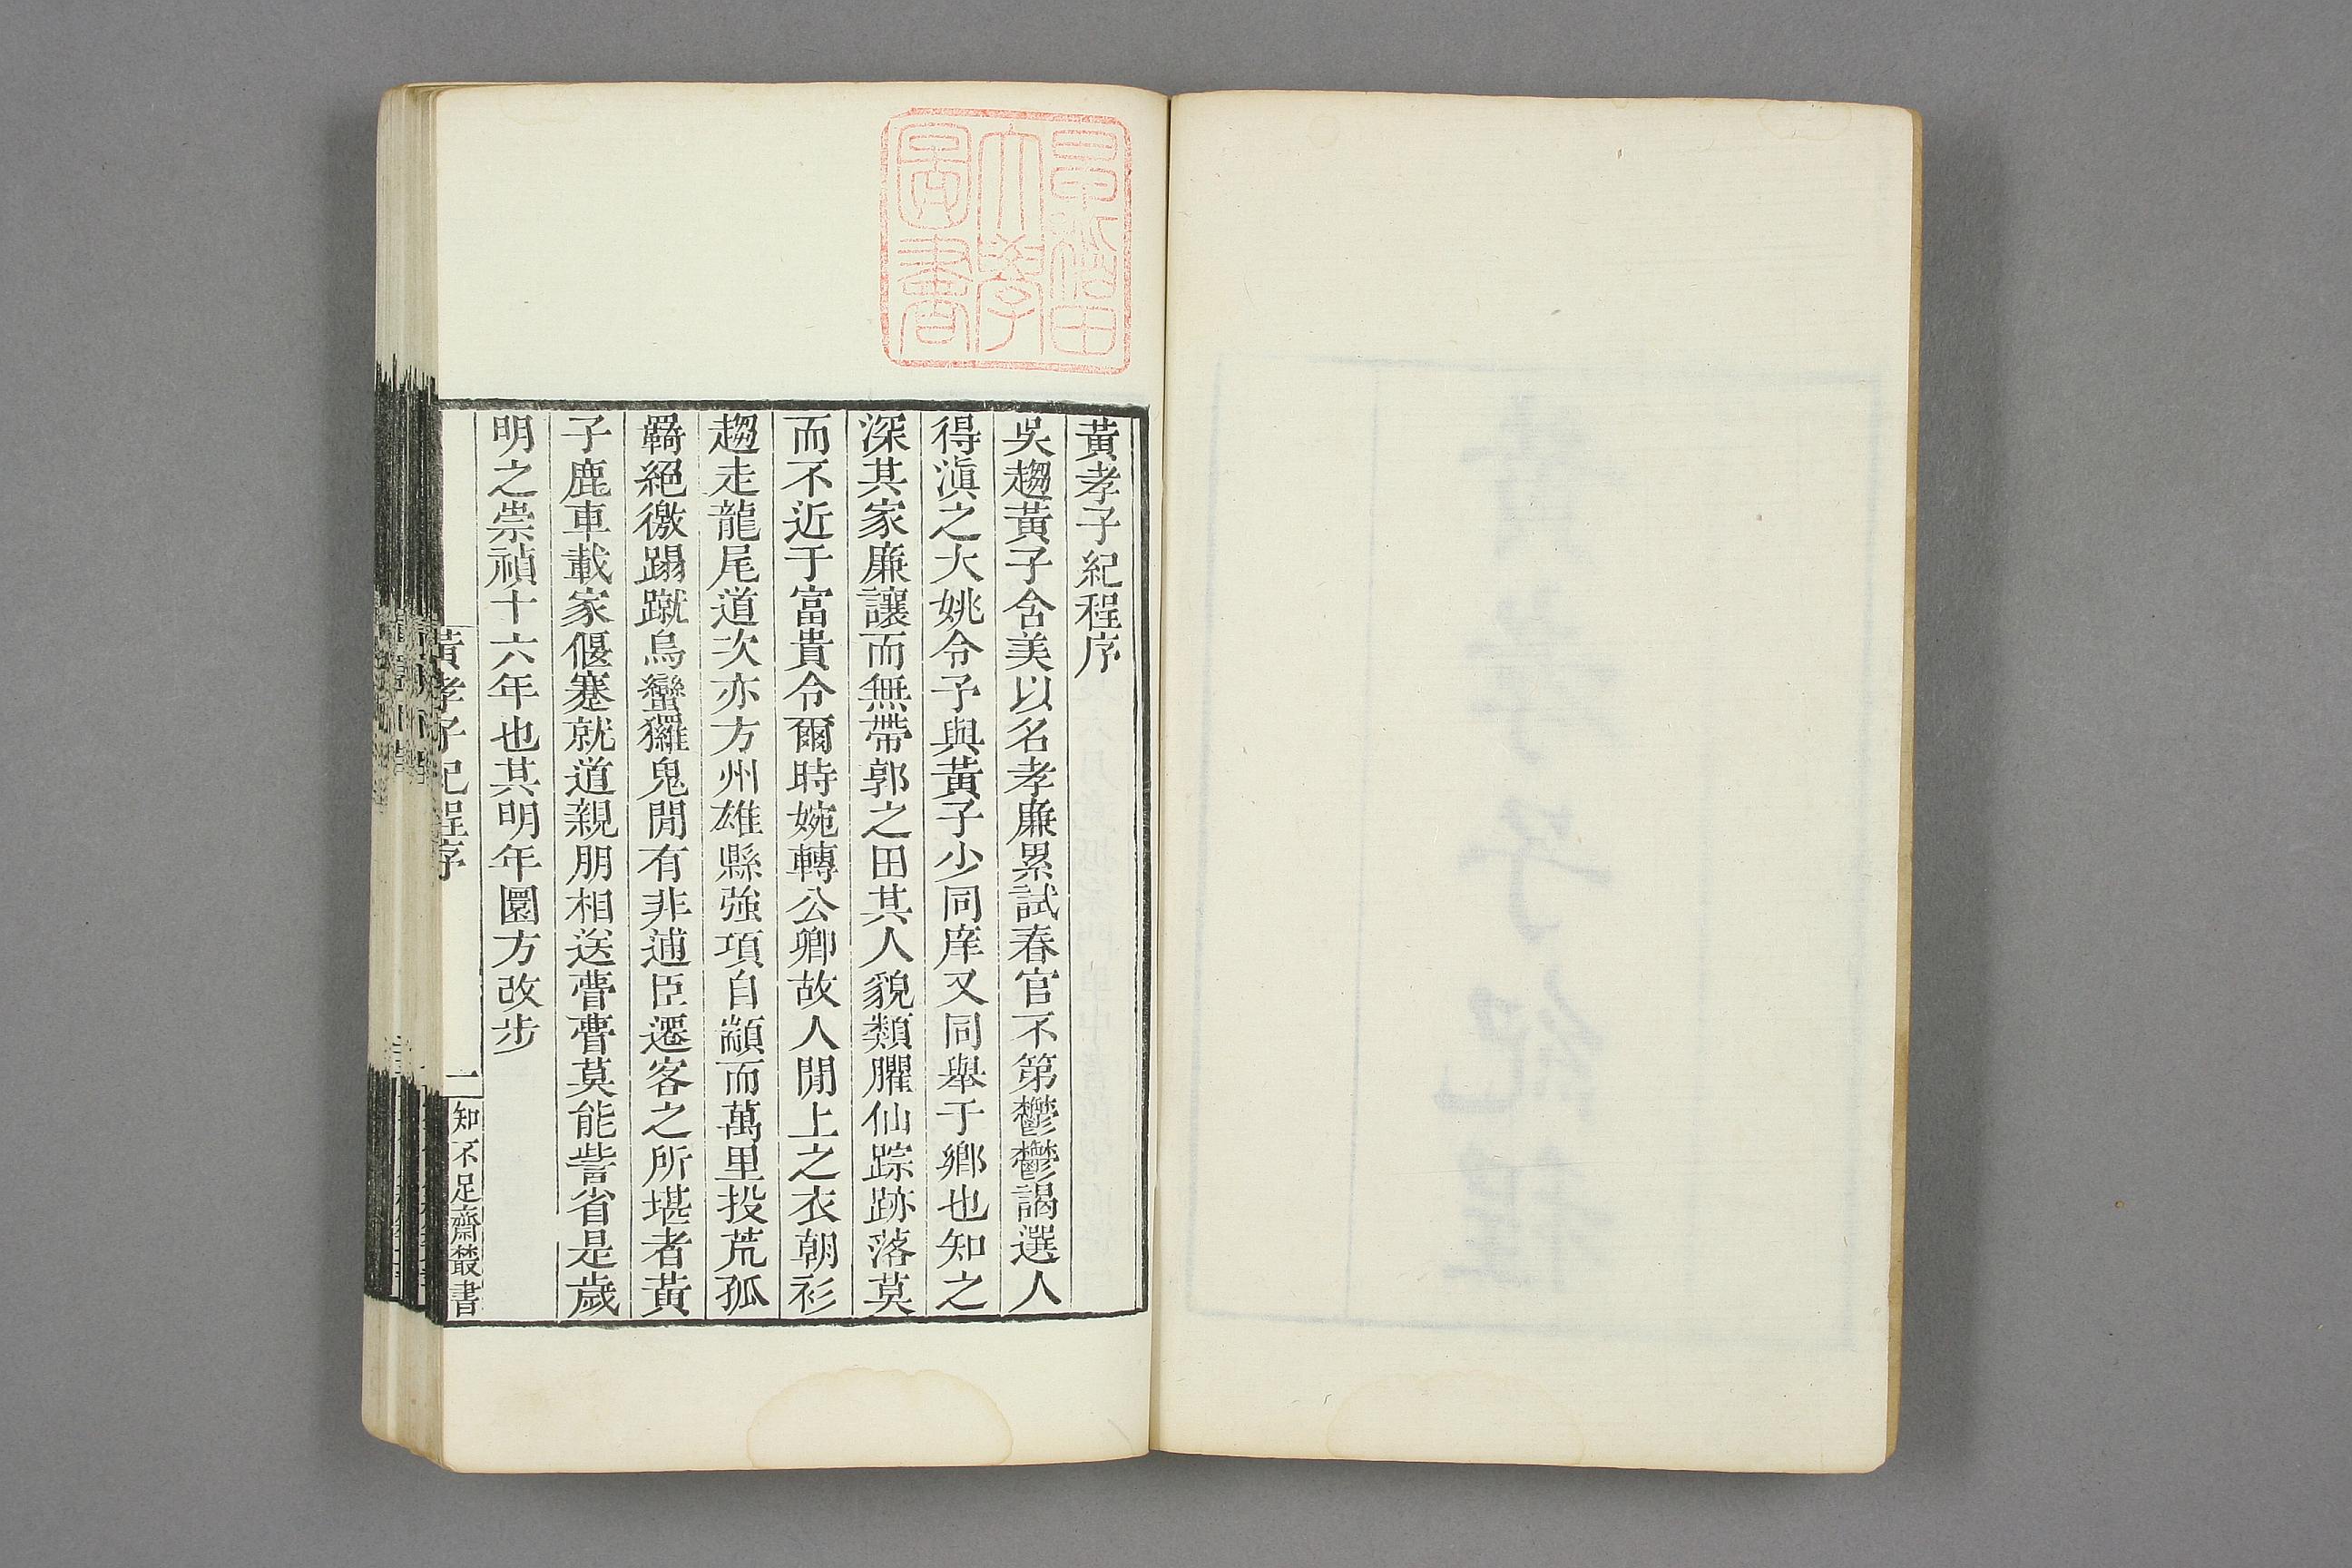 黃孝子紀程序
吳趨黃子含美以名孝廉累試春官不第鬱鬱謁選人
得滇之大姚令予與黃子少同庠又同舉于鄉也知之
深其家廉讓而無帶郭之田其人貌類臞仙踪跡落莫
而不近于富貴令爾時婉轉公卿故人閒上之衣朝衫
趨走龍尾道次亦方州雄縣強項自顓而萬里投荒孤
羇絕徼蹋蹴烏蠻玀鬼閒有非逋臣遷客之所堪者黃
子鹿車載家偃蹇就道親朋相送瞢瞢莫能訾省是歲
明之崇禎十六年也其明年圜方改步
黃孝子紀程序
一
知不足齋叢書
早稻田
大學
圖書